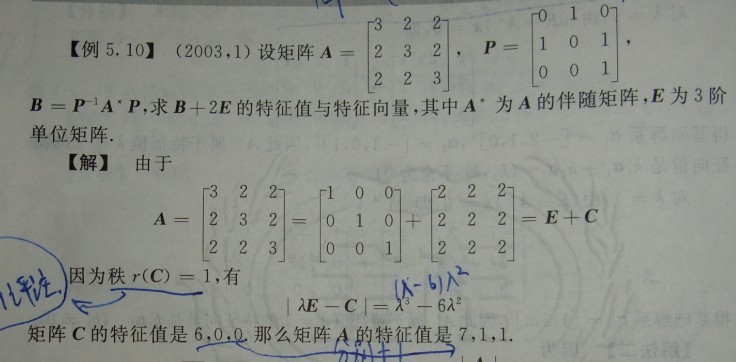 【例 5.10】 (2003,1) 设矩阵 A = [3 2 2; 2 3 2; 2 2 3], P = [0 1 0; 1 0 1; 0 0 1],
B = P⁻¹A*P,求 B+2E 的特征值与特征向量,其中 A* 为 A 的伴随矩阵,E 为 3 阶
单位矩阵.
【解】 由于
A = [3 2 2; 2 3 2; 2 2 3] = [1 0 0; 0 1 0; 0 0 1] + [2 2 2; 2 2 2; 2 2 2] = E + C
因为秩 r(C) = 1,有
(λ-6)λ²
| λE − C | = λ³ − 6λ²
矩阵 C 的特征值是 6,0,0. 那么矩阵 A 的特征值是 7,1,1.